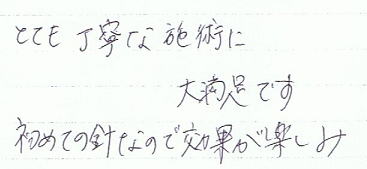 とても丁寧な施術に
大満足です
初めての針なので効果が楽しみ